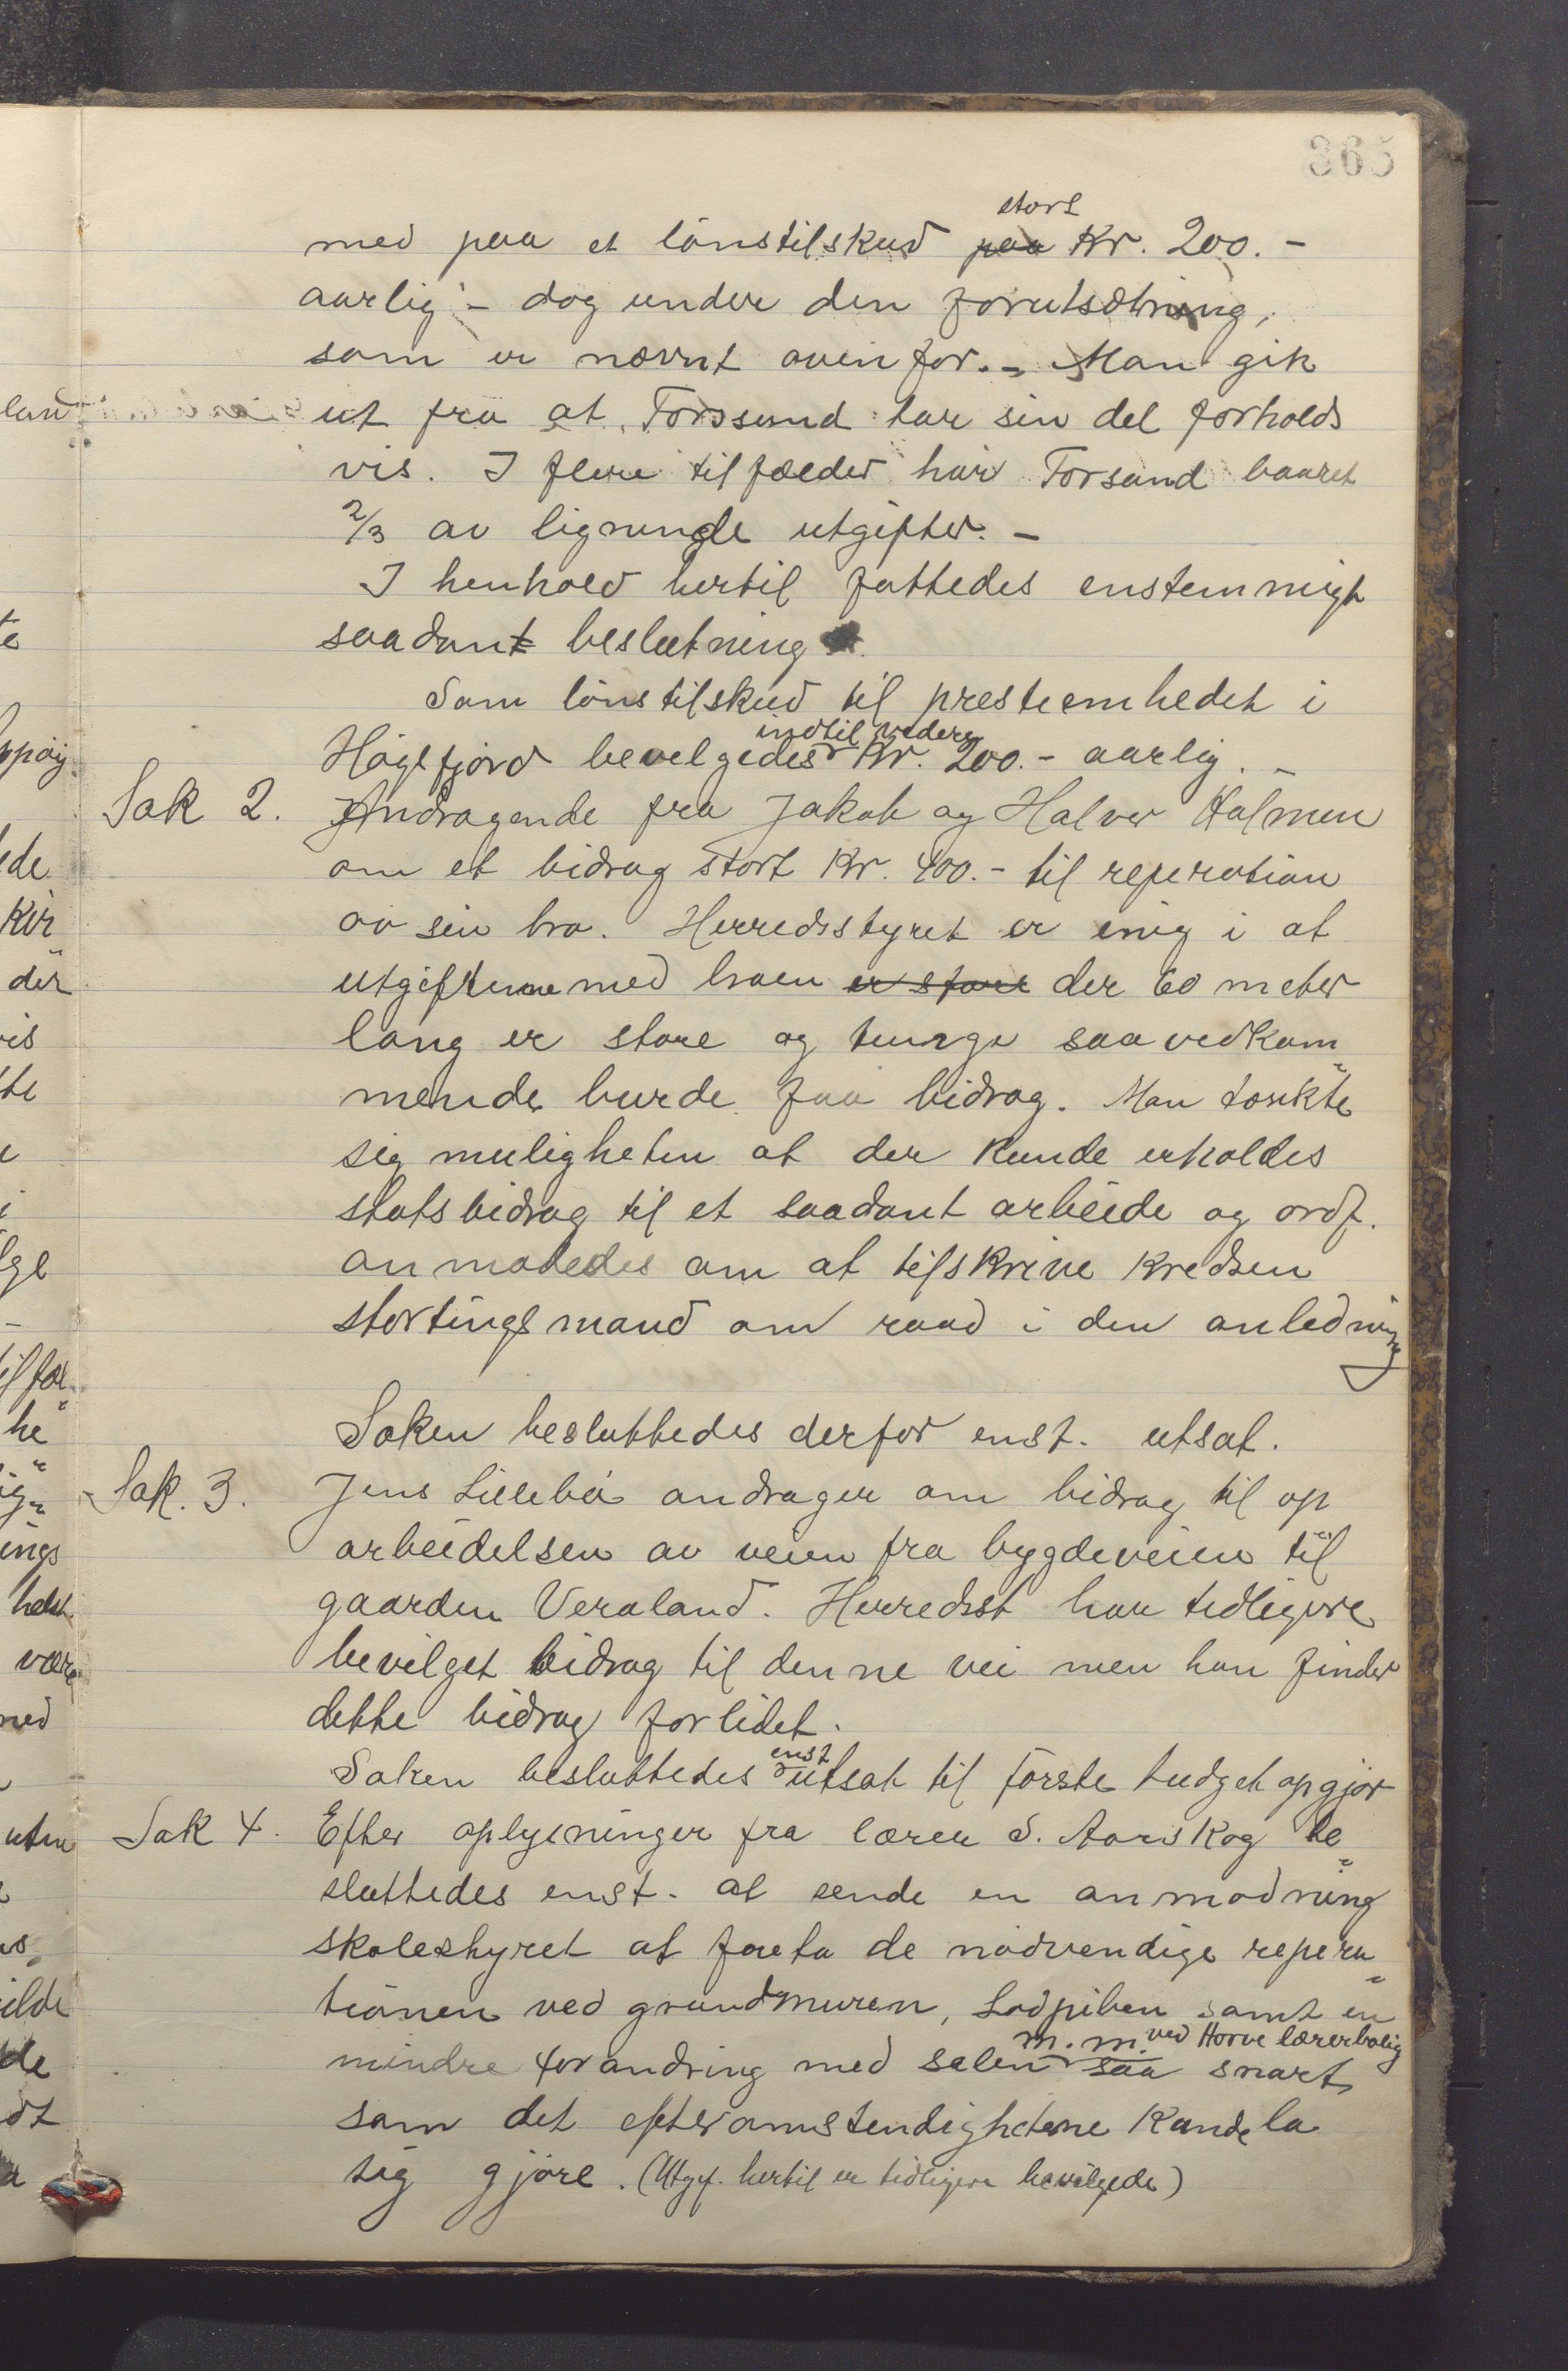 365
med paa et lönstilskud paa stort Kr. 200.-
aarlig - dog under den forutsætning,
som er nævnt ovenfor. - Man gik
ut fra at Forssand tar sin del forholds
vis. I flere tilfælder har Forsand baaret
2/3 av lignende utgifter. -
I henhold hertil fattedes enstemmigt
saadant beslutning
Som lönstilskud til presteembedet i
Högsfjord bevelgedes indtil vedere Kr. 200.- aarlig. -
Sak 2. Andragende fra Jakob og Halvor Halmen
om et bidrag stort Kr. 400.- til reperation
av sin bro. Herredsstyret er enig i at
utgifterne med broen er store der 60 meter
lang er store og tunge saa vedkom
mende burde faa bidrag. Man tænkte
sig muligheten at der kunde erholdes
statsbidrag til et saadant arbeide og ordf.
anmodedes om at tilskrive kredsen
stortingsmand om raad i den anledning
Saken besluttedes derfor enst. utsat.
Sak. 3. Jens Lillebö andrager om bidrag til op
arbeidelsen av veien fra bygdeveien til
gaarden Veraland. Herredsst har tidligere
bevilget bidrag til denne vei men han finder
dette bidrag forlidet.
Saken besluttedes enst utsat til förste budget opgjör
Sak 4. Efter oplysninger fra lærer S. Aarskog be
sluttedes enst. at sende en anmodning
skolestyret at foreta de nödvendige repera
tionen ved grundmuren, Lodpiben samt en
mindre forandring med salen m. m. ved Horve lærerbolig saa snart
som det efter omstendighetene kunde la
sig gjöre. (Utgf. hertil er tidligere bevilgede)